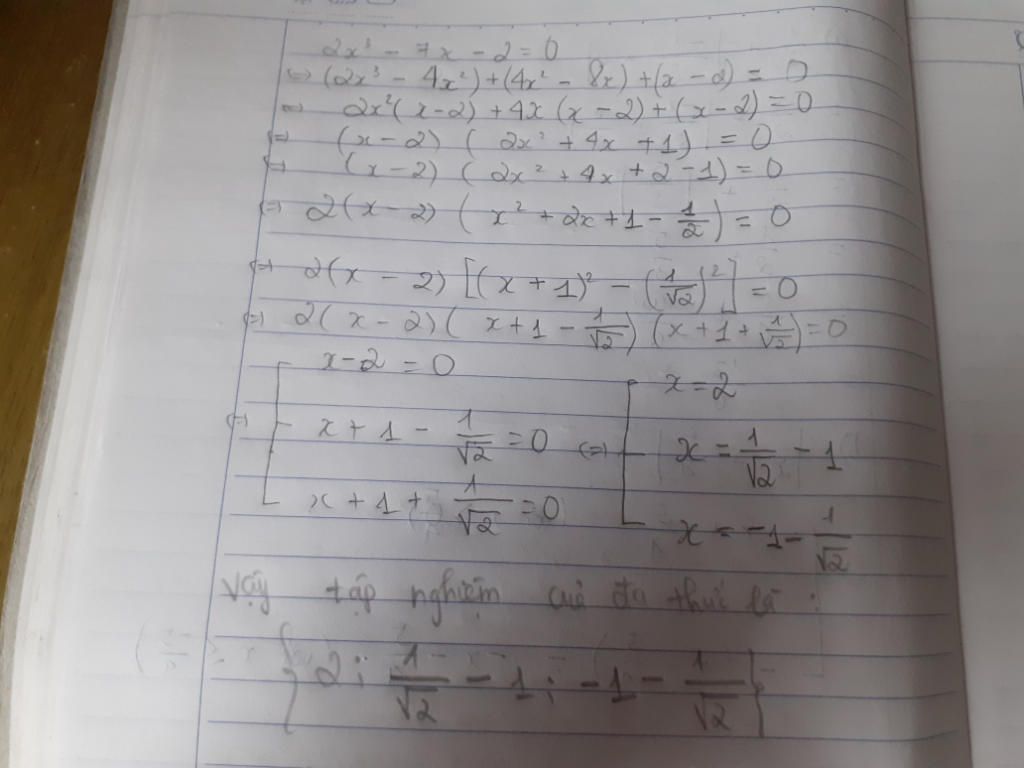 2x³ - 7x - 2 = 0
⇔ (2x³ - 4x²) + (4x² - 8x) + (x - 2) = 0
⇔ 2x² (x - 2) + 4x (x - 2) + (x - 2) = 0
⇔ (x - 2) (2x² + 4x + 1) = 0
⇔ (x - 2) (2x² + 4x + 2 - 1) = 0
⇔ 2(x - 2) (x² + 2x + 1 - 1/2) = 0
⇔ 2(x - 2) [(x + 1)² - (1/√2)²] = 0
⇔ 2(x - 2) (x + 1 - 1/√2) (x + 1 + 1/√2) = 0
⇔ [ x - 2 = 0
x + 1 - 1/√2 = 0
x + 1 + 1/√2 = 0
⇔ [ x = 2
x = 1/√2 - 1
x = -1 - 1/√2
Vậy tập nghiệm của đa thức là :
{2; 1/√2 - 1; -1 - 1/√2}